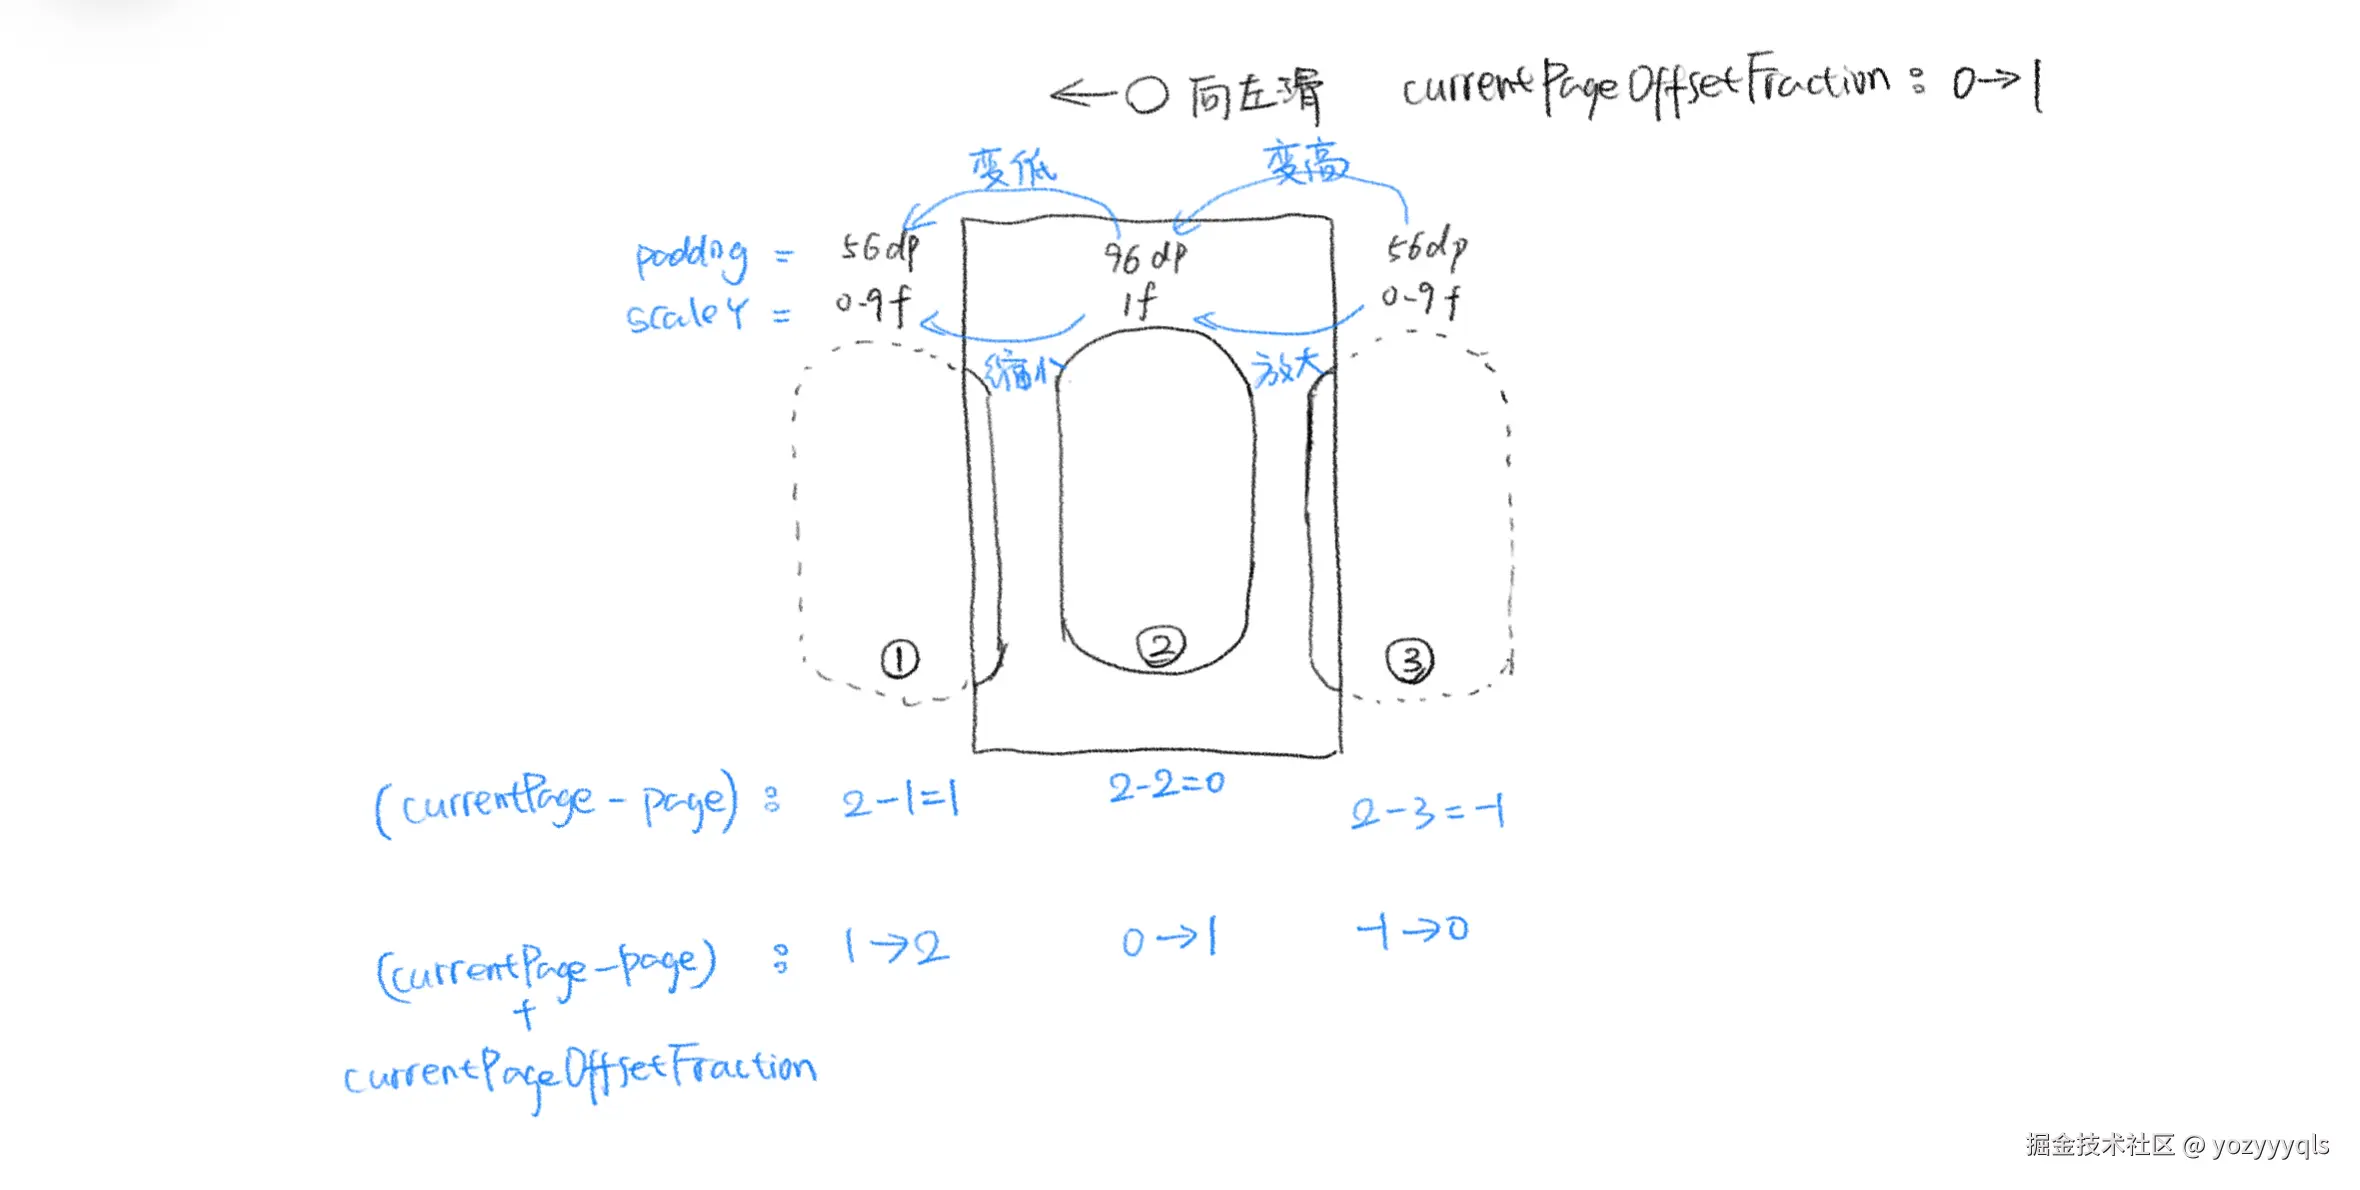 ←○ 向左滑 currentPageOffsetFraction: 0→1
变低 变高
padding = 56dp 96dp 56dp
scaleY = 0.9f 1f 0.9f
缩小 放大
① ② ③
(currentPage - page): 2-1=1 2-2=0 2-3=-1
(currentPage-page): 1→2 0→1 -1→0
+
currentPageOffsetFraction
掘金技术社区 @ yozyyyqls